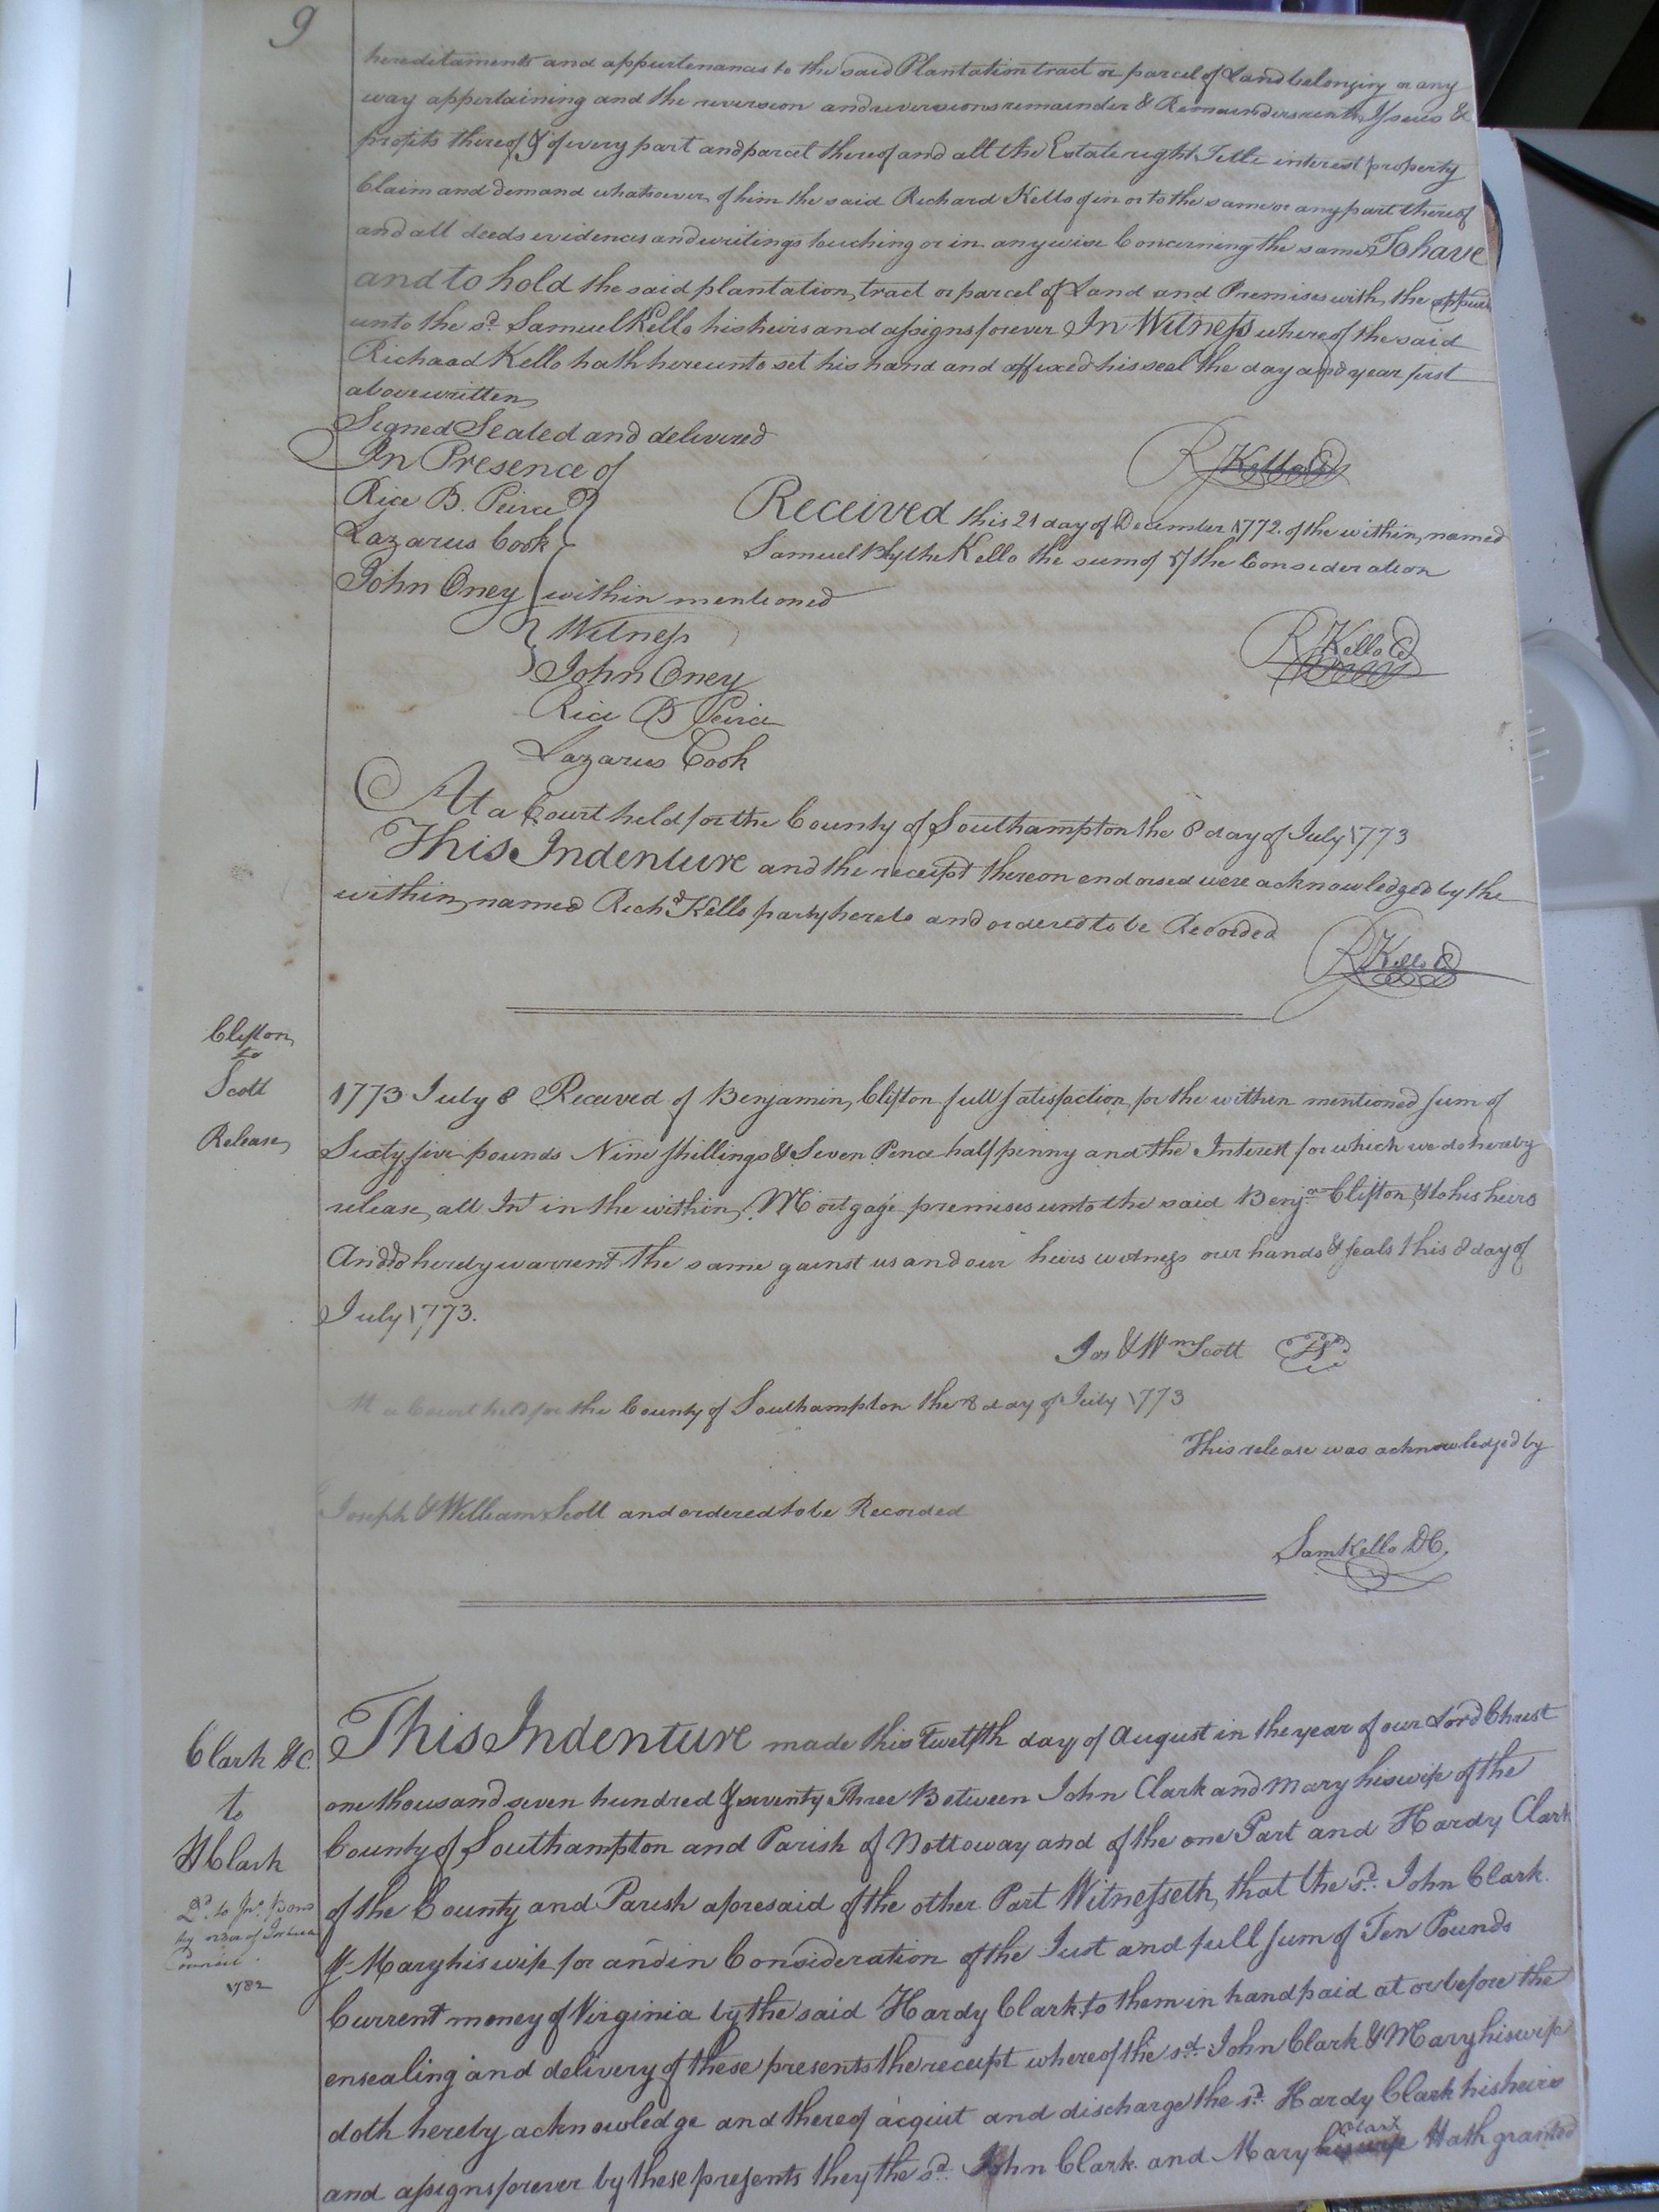 9
hereditaments and appurtenances to the said Plantation tract or parcel of Land belonging or any
way appertaining and the reversion and reversions remainder & Remainders rents Issues &
profits thereof & of every part and parcel thereof and all the Estate right Title interest property
Claim and demand whatsoever of him the said Richard Kello of in or to the same or any part thereof
and all deeds evidences and writings touching or in any wise Concerning the same To have
and to hold the said plantation, tract or parcel of Land and Premises with the appurs
unto the sd. Samuel Kello his heirs and assigns forever In Witness whereof the said
Richard Kello hath hereunto set his hand and affixed his seal the day and year first
above written
Signed Sealed and delivered
In Presence of
R Kello
Rice B. Peirce
Lazarus Cook
John Oney
Received this 21 day of December 1772. of the within named
Samuel Blythe Kello the sum of the Consideration
within mentioned
Witness
R Kello
John Oney
Rice B Peirce
Lazarus Cook
At a Court held for the County of Southampton the 8 day of July 1773
This Indenture and the receipt thereon endorsed were acknowledged by the
within named Richd Kello party hereto and ordered to be Recorded
R Kello
Clifton
to
Scott
Release
1773 July 8 Received of Benjamin Clifton full satisfaction for the within mentioned sum of
Sixty five pounds Nine shillings & Seven Pence half penny and the Interest for which we do hereby
release all Int in the within Mortgage premises unto the said Benja Clifton & to his heirs
And do hereby warrent the same gainst us and our heirs witness our hands & seals this 8 day of
July 1773.
Jos & Wm Scott
At a Court held for the County of Southampton the 8 day of July 1773
This release was acknowledged by
Joseph & William Scott and ordered to be Recorded
Sam Kello DC.
Clark &c.
to
H Clark
by order of
1782
This Indenture made this Twelfth day of August in the year of our Lord Christ
one thousand seven hundred & seventy Three Between John Clark and Mary his wife of the
County of Southampton and Parish of Nottoway and of the one Part and Hardy Clark
of the County and Parish aforesaid of the other Part Witnesseth, that the sd. John Clark.
& Mary his wife for and in Consideration of the Just and full sum of Ten Pounds
Current money of Virginia by the said Hardy Clark to them in hand paid at or before the
ensealing and delivery of these presents the receipt whereof the sd. John Clark & Mary his wife
doth hereby acknowledge and thereof acquit and discharge the sd. Hardy Clark his heirs
and assigns forever by these presents they the sd. John Clark and Mary Clark Hath granted